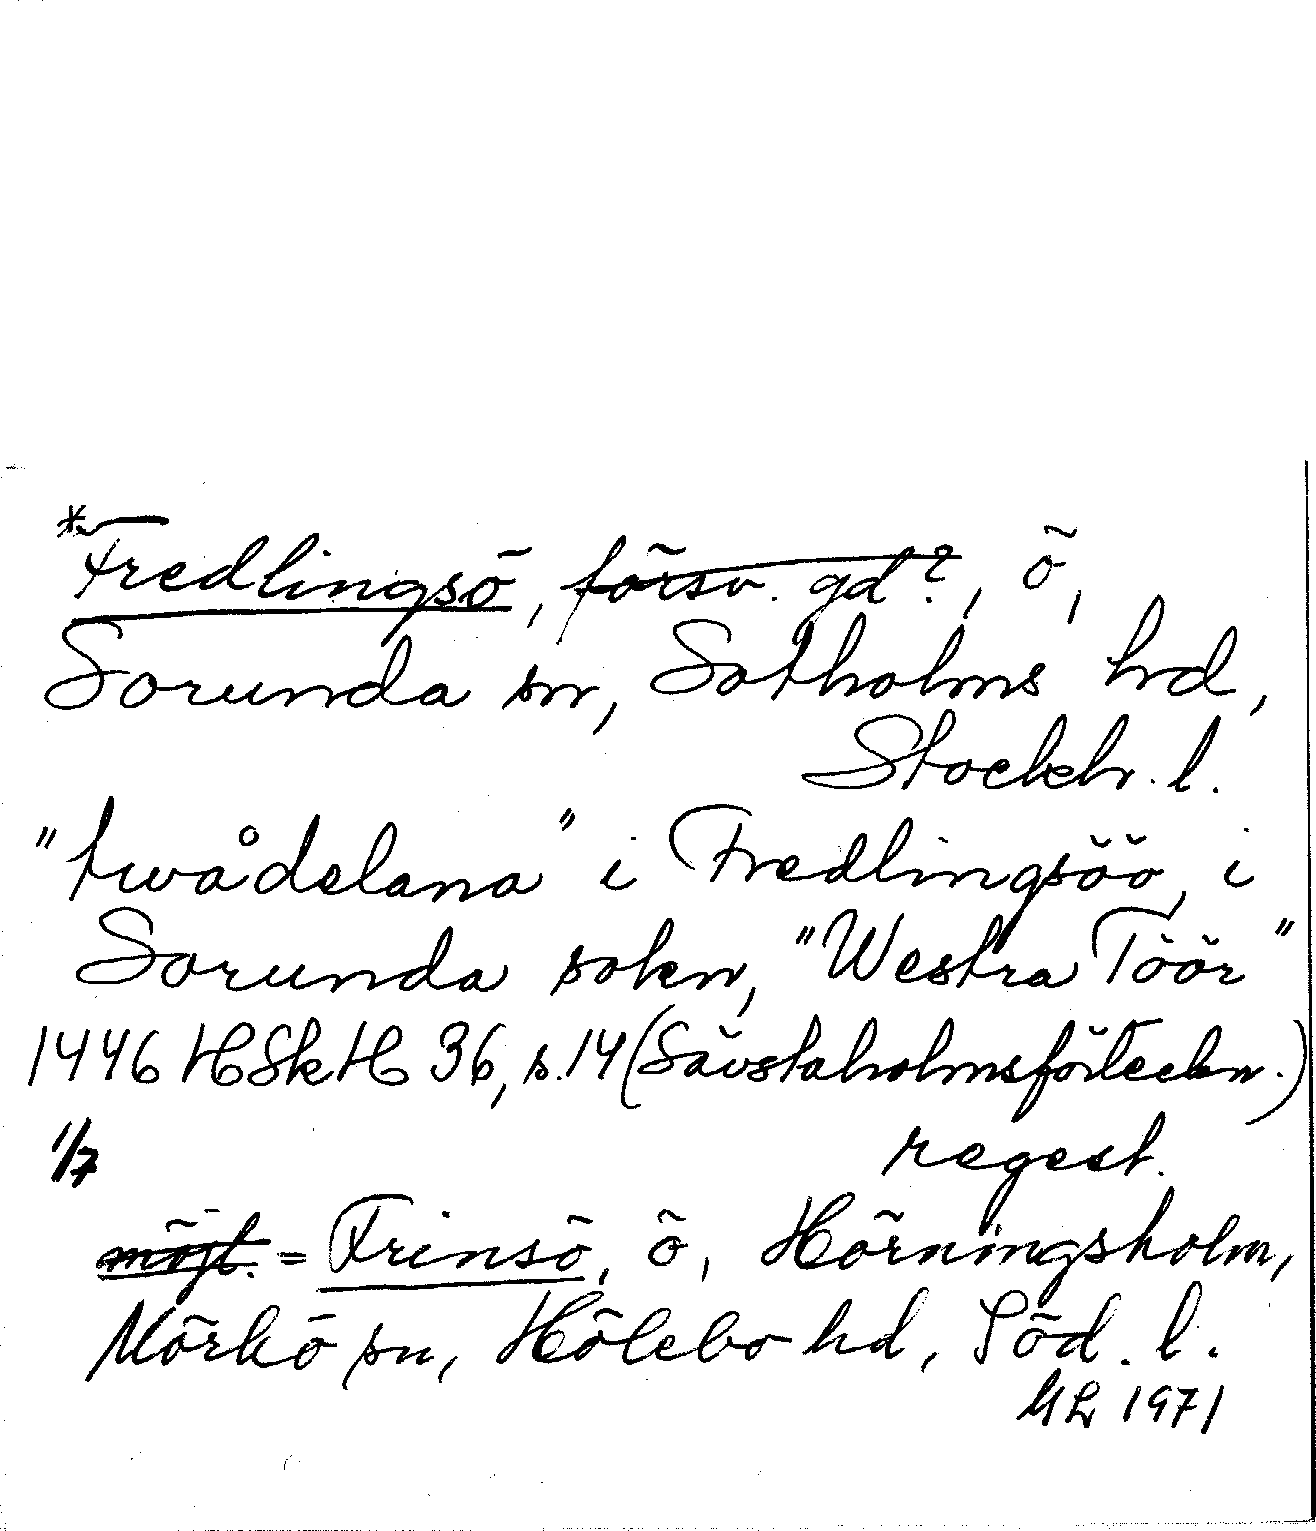 *Fredlingsö, försv. gd?, ö,
Sorunda sn, Sotholms hd,
Stockh. l.
"twådelana" i Fredlingsöö, i
Sorunda sokn, "Westra Töör"
1446 HSkH 36, s. 14 (Sävstaholmsförteckn.)
1/7 regest.
möjl. = Frinsö, ö, Hörningsholm,
Mörkö sn, Hölebo hd, Söd. l.
ML 1971